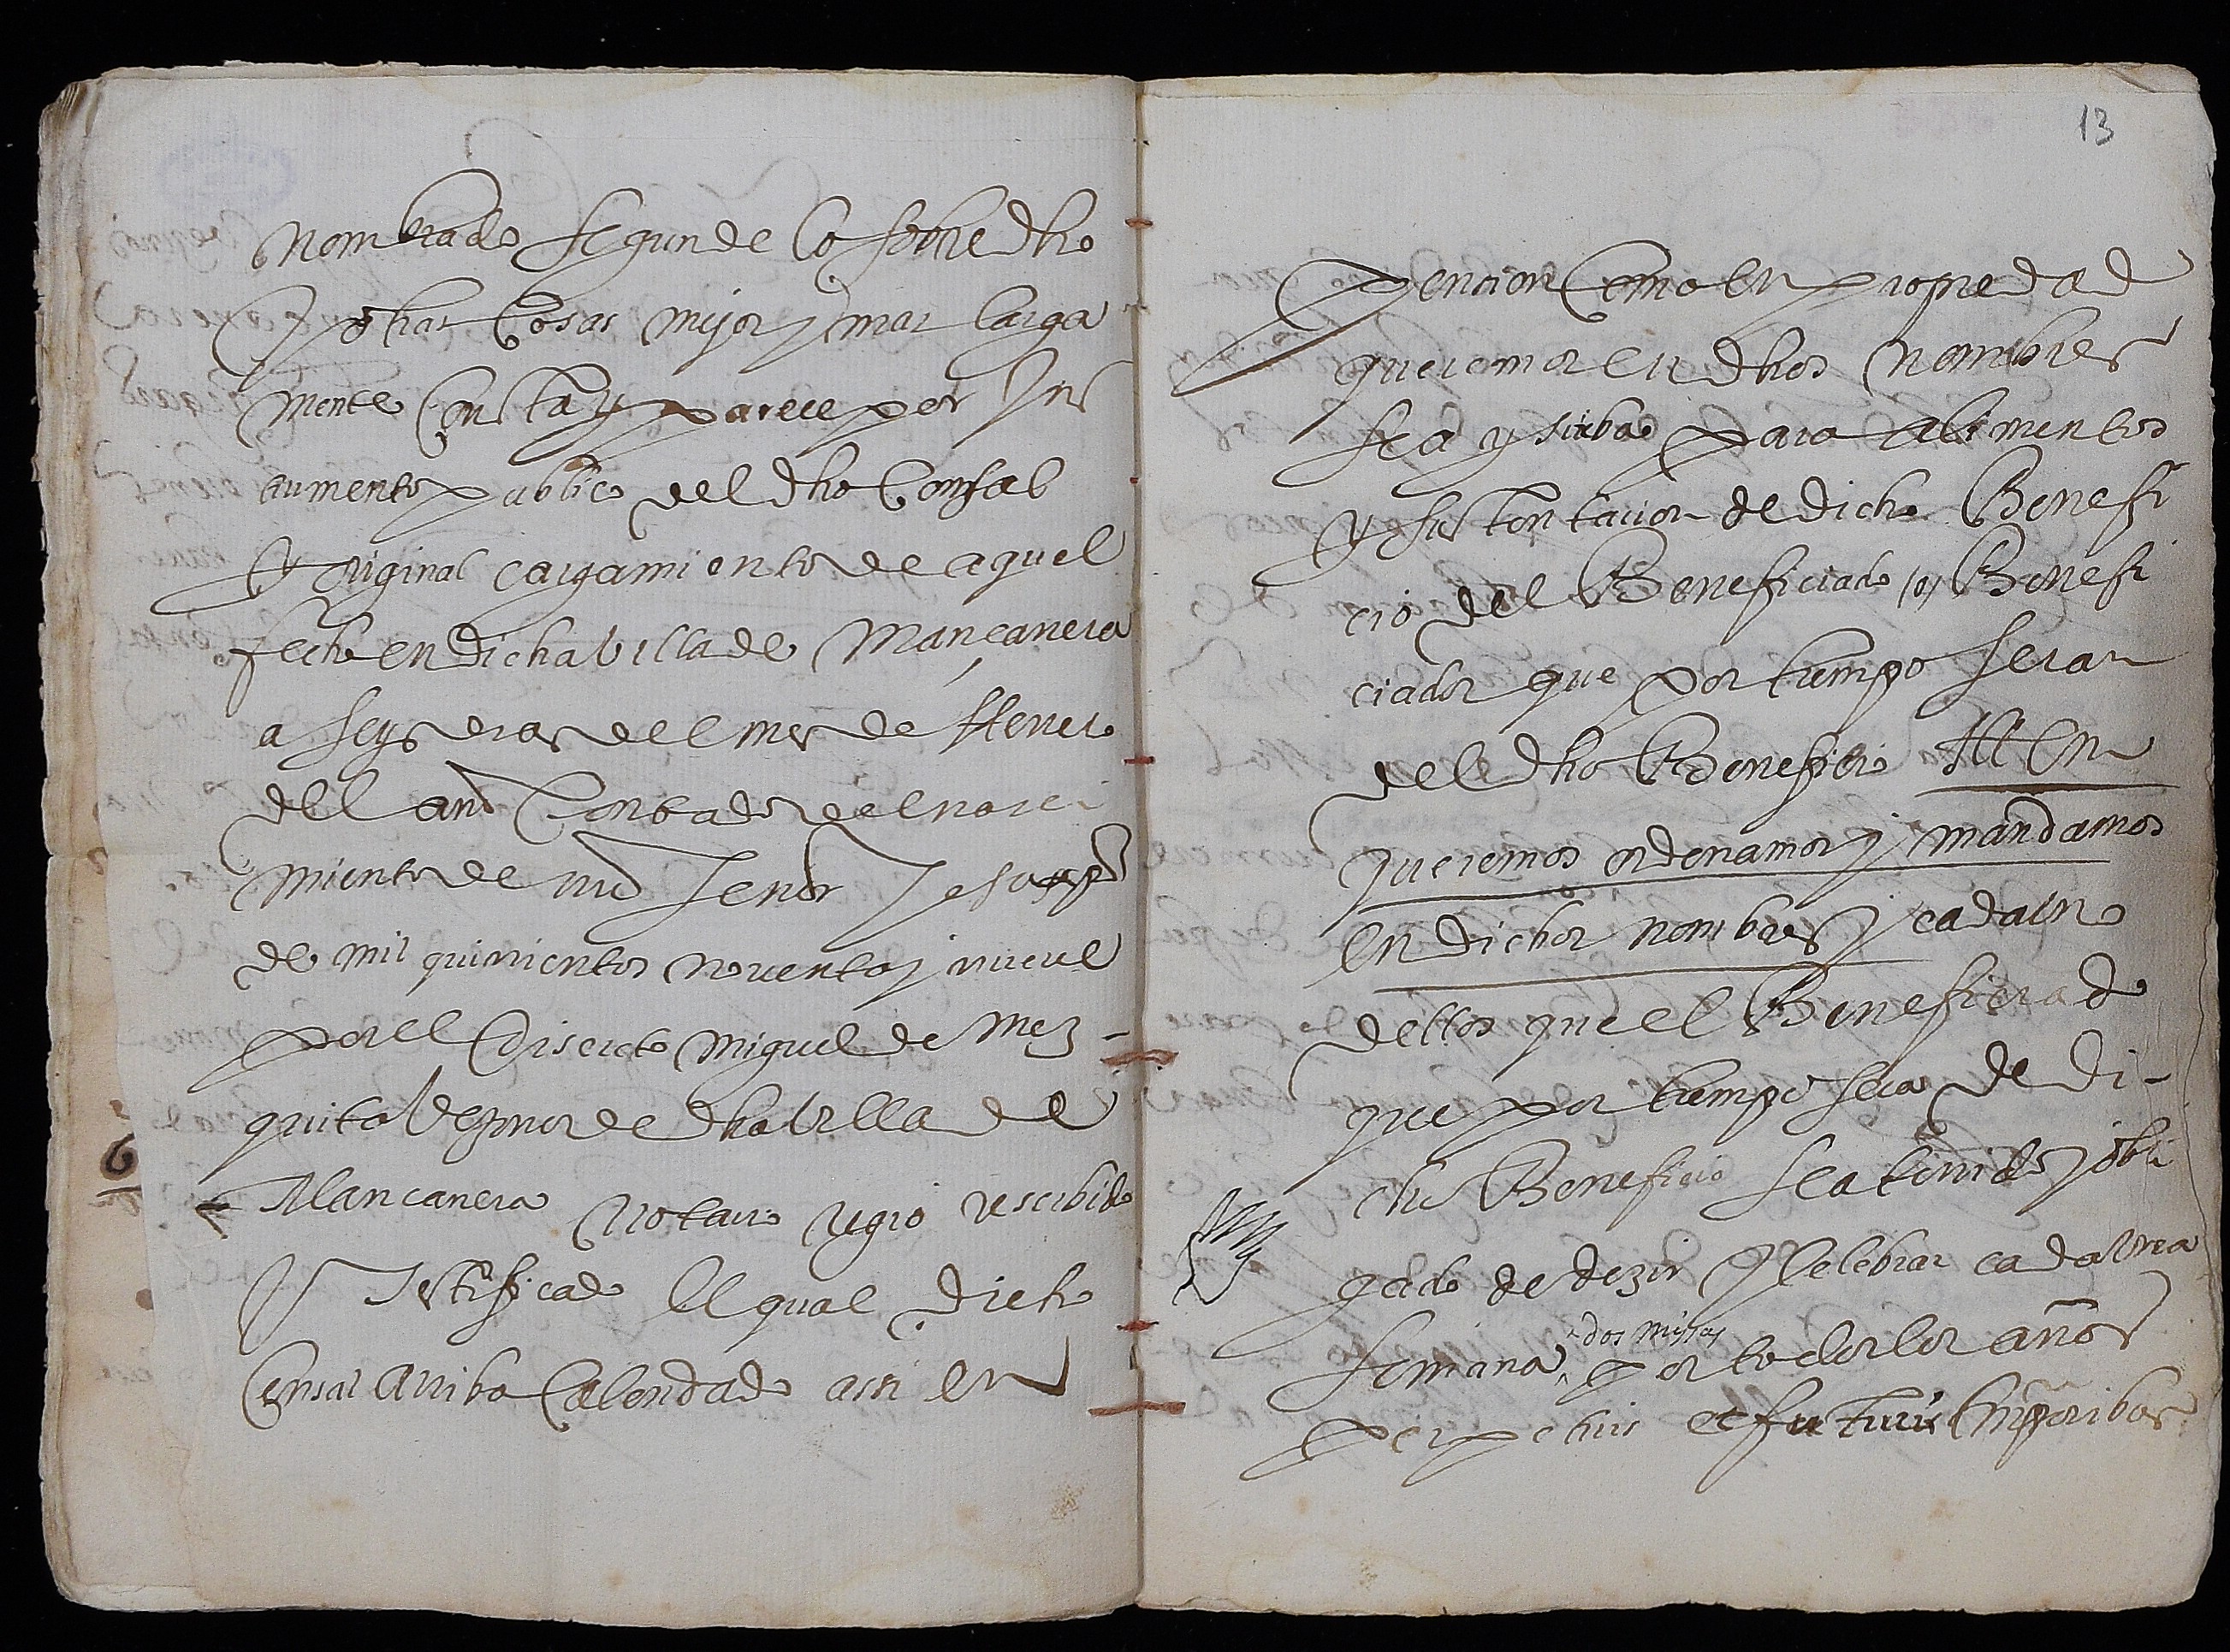 nombrado segun de lo sobre dho
y otras cosas mejor y mas larga
mente consta y parece por Ins
trumento publico del dho Censal
y original cargamiento de aquel
fecho en dicha villa de Mançanera
a seys dias del mes de Henero
del año Contado del nasci
miento de nro señor Jesu xpo
de mil quinientos noventa y nueve
por el discreto Miguel de Mez-
quita vezino de dha villa de
Mancanera notario regio rescibido
y testificado el qual dicho
Censal arriba Calendado assi en
13
pencion como en propiedad
queremos en dhos nombres
sea y sirba para alimentos
y sustentacion de dicho Benefi
cio del Beneficiado /o/ Benefi
ciados que por tiempo seran
del dho Beneficio Itten
queremos ordenamos y mandamos
en dichos nombres y cada uno
dellos que el Beneficiado
que por tiempo sera de di-
cho Beneficio sea tenido y obli
gado de dezir y celebrar cada una
dos missas
semana por todos los años
perpetuis et futuris temporibus
6